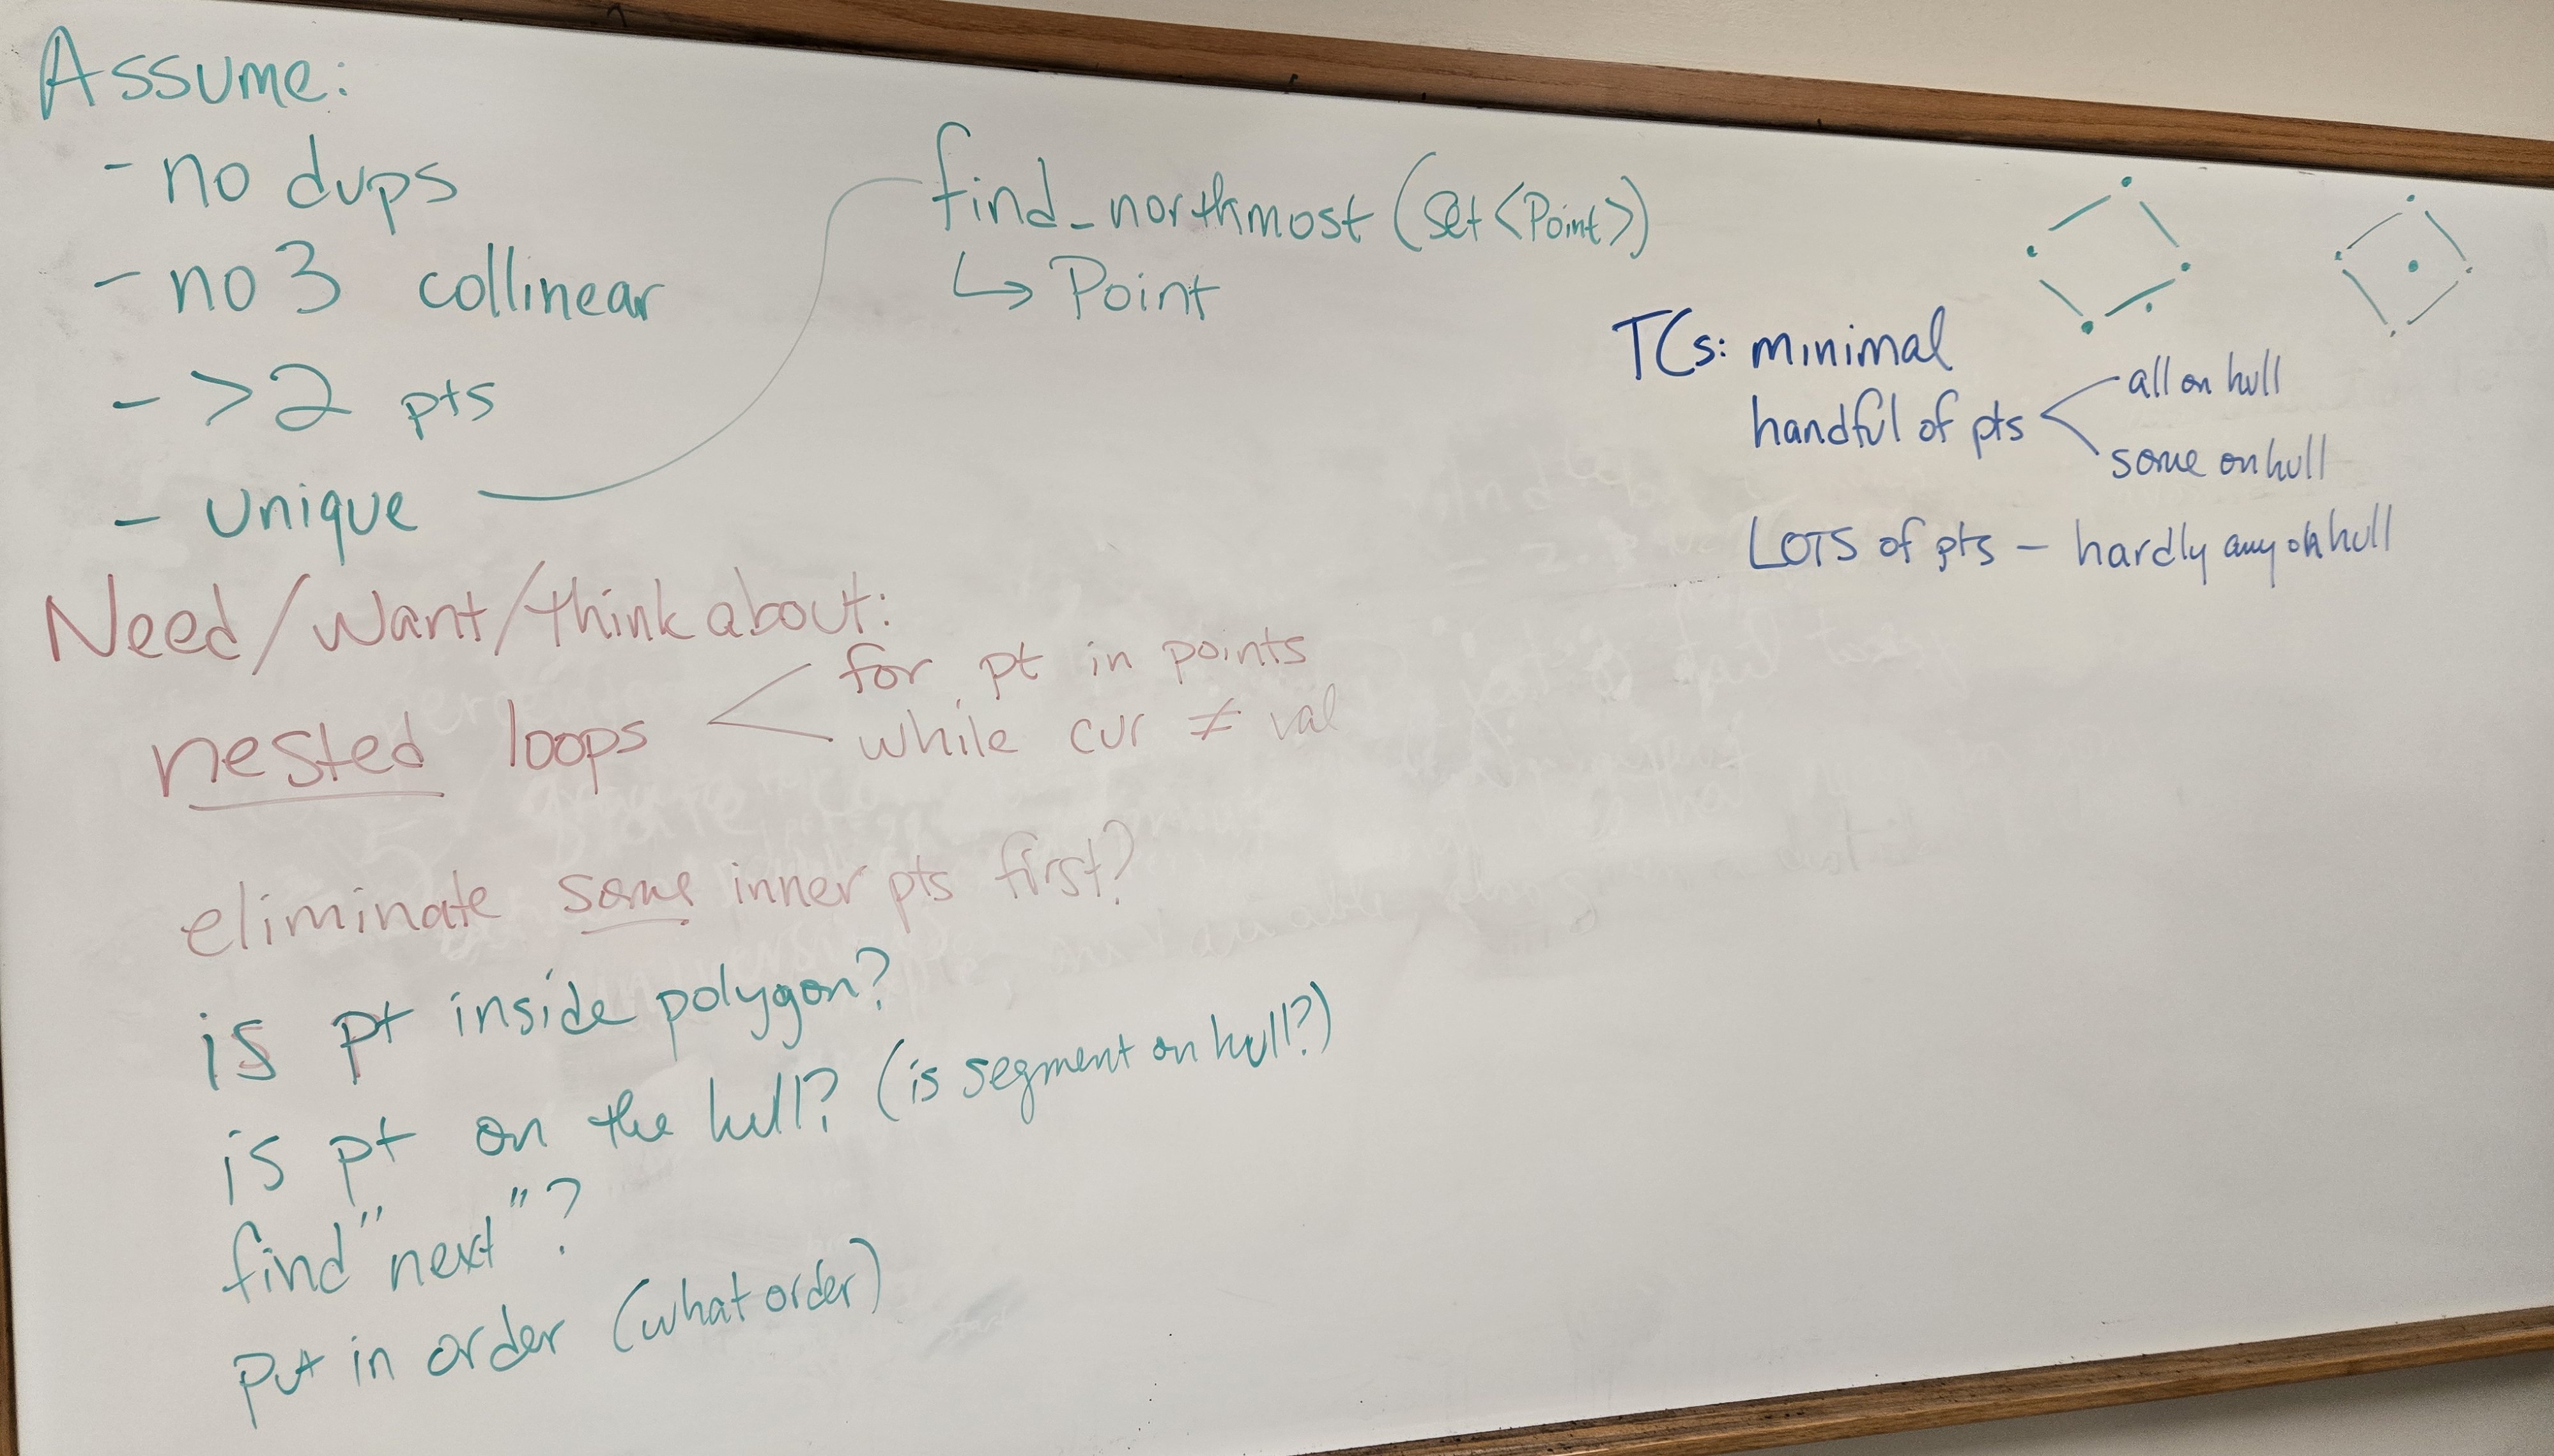 Assume:
- no dups
- no 3 collinear
- >2 pts
- unique
find_northmost (Set<Point>)
↳ Point
TCs: minimal
handful of pts
all on hull
some on hull
LOTS of pts - hardly any on hull
Need/Want/think about:
nested loops
for pt in points
while cur ≠ val
eliminate some inner pts first?
is pt inside polygon?
is pt on the hull? (is segment on hull?)
find "next"?
put in order (what order)